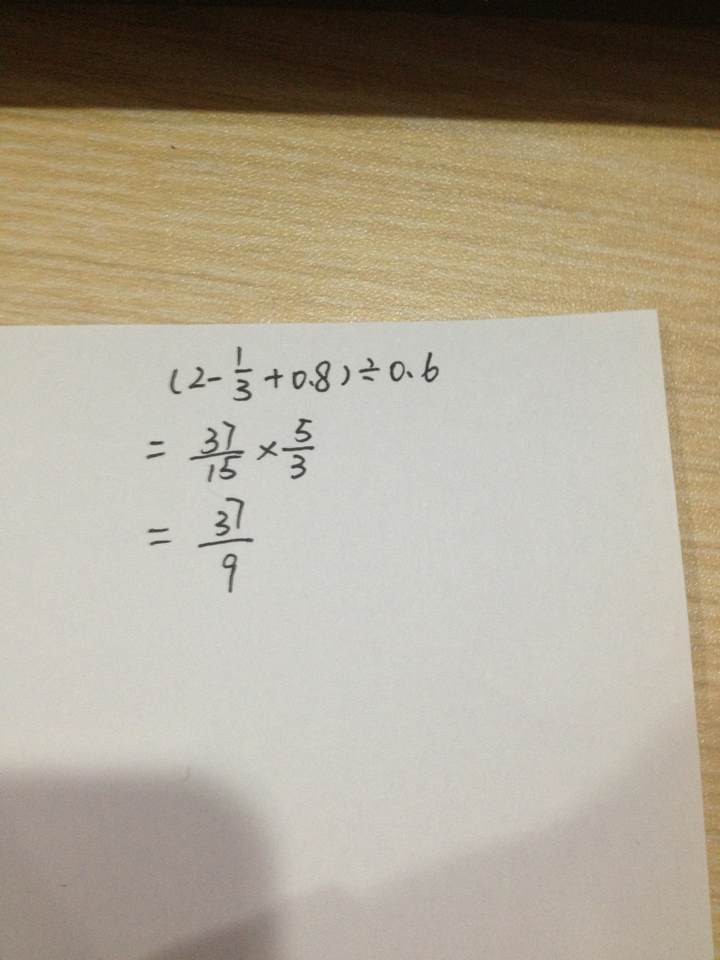 (2-1/3+0.8)÷0.6
=37/15×5/3
=37/9